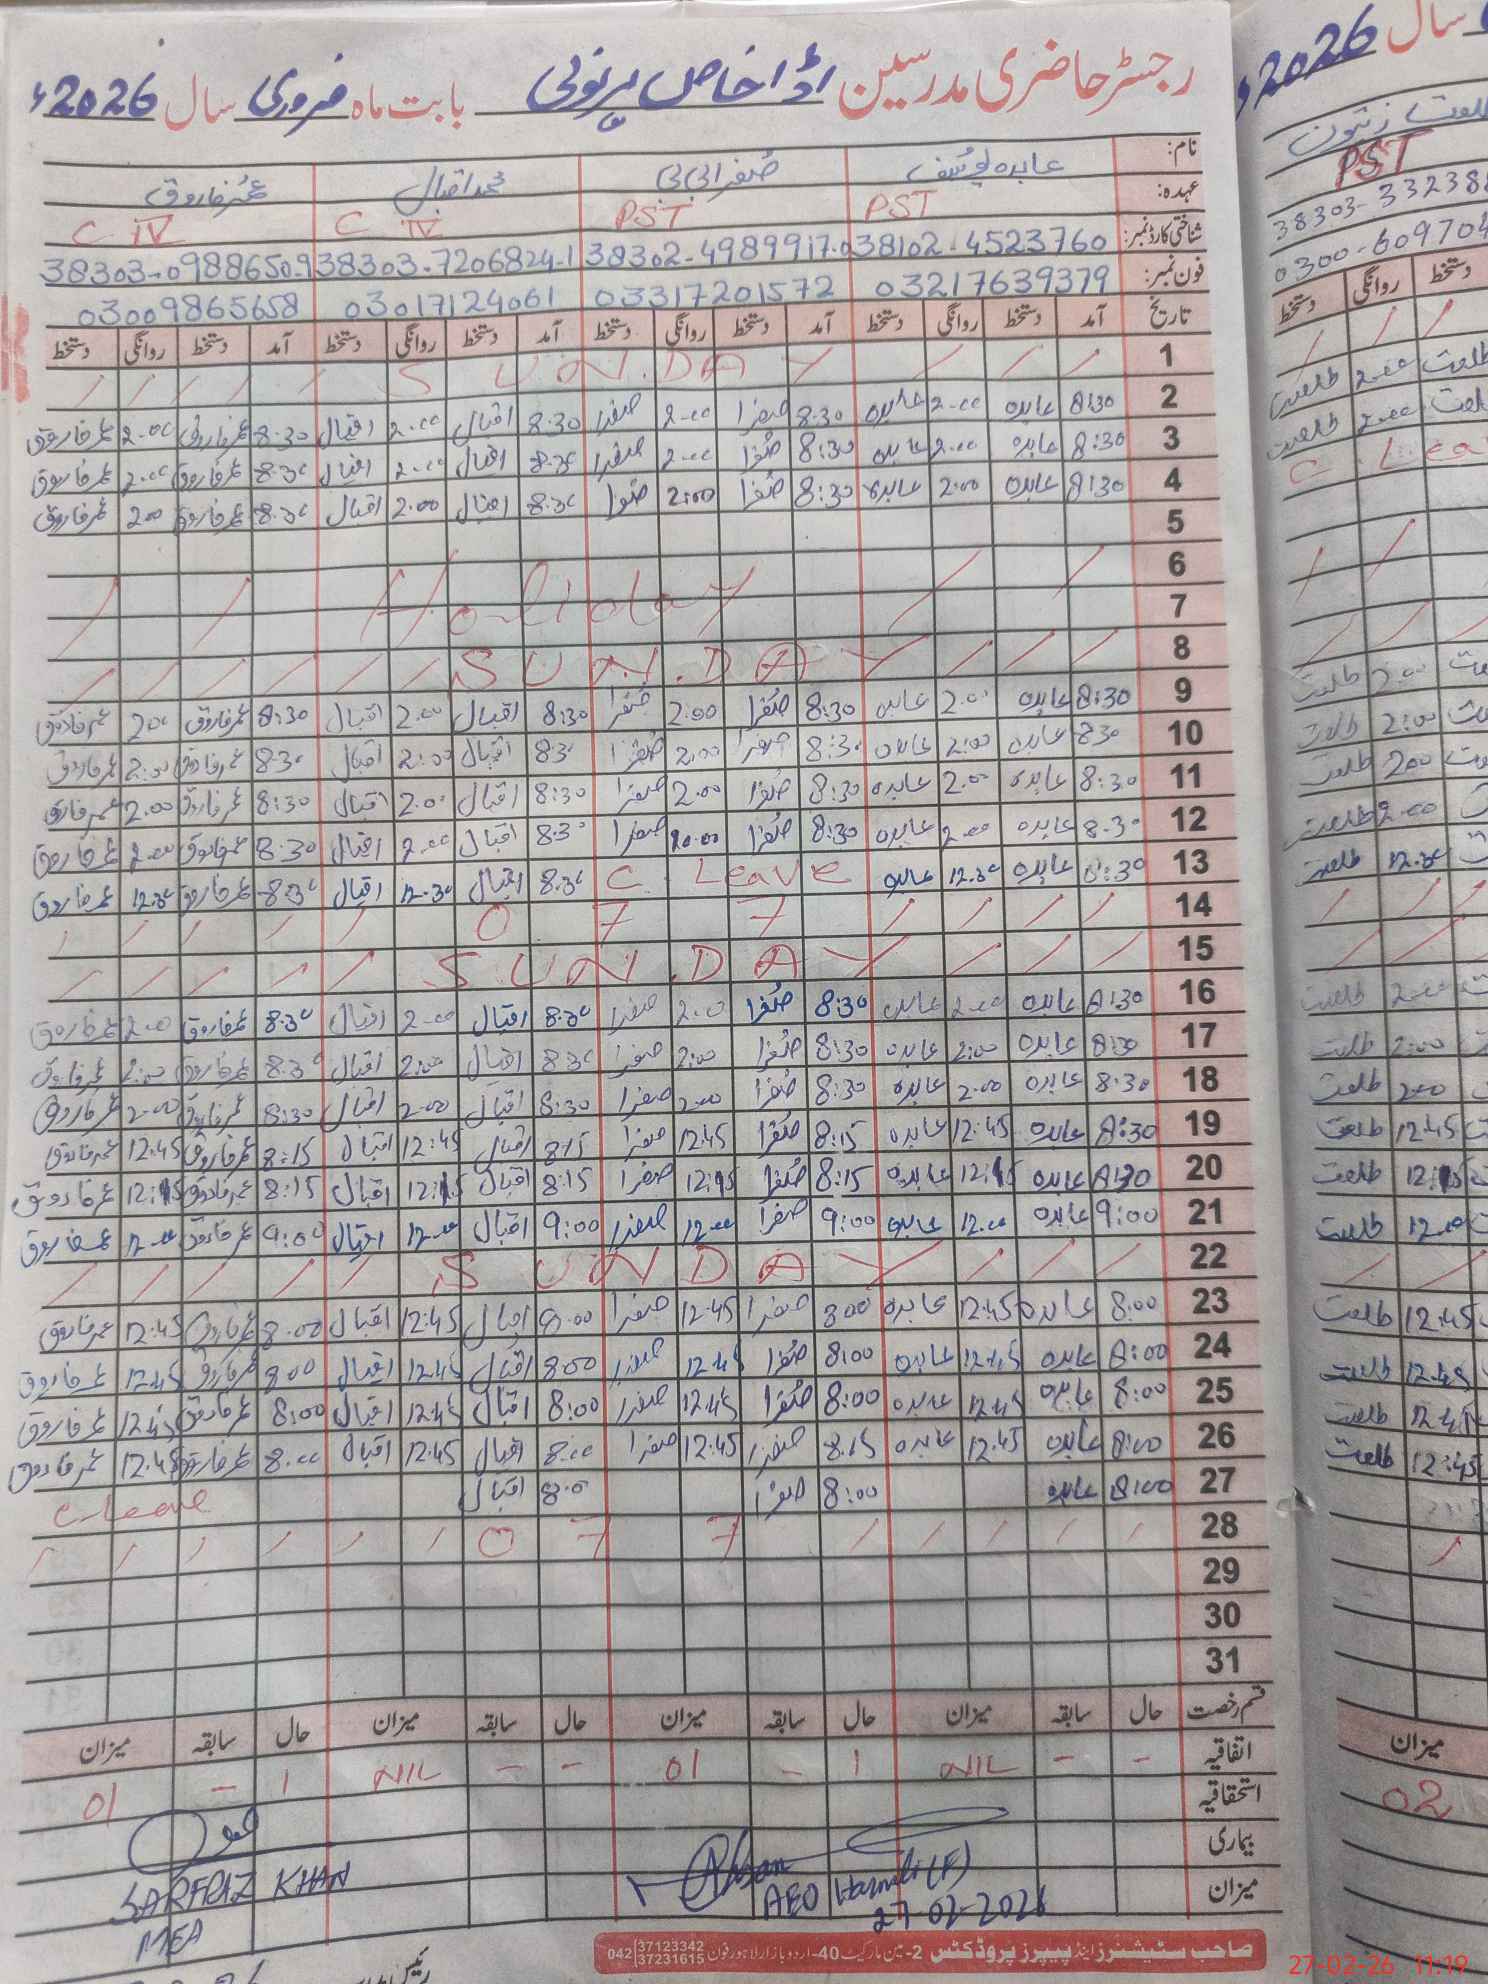 رجسٹر حاضری مدرسین اڈا خاص پرنولی بابت ماہ فروری سال 2026ء
نام: عابدہ یوسف صُغراں بی بی محمد اقبال عُمر فاروق
عہدہ: PST PST C IV C IV
شناختی کارڈ نمبر: 38102-4523760 38302-4989917-0 38303-7206824-1 38303-0988650-9
فون نمبر: 03217639379 03317201572 03017124061 03009865658
تاریخ آمد دستخط روانگی دستخط آمد دستخط روانگی دستخط آمد دستخط روانگی دستخط آمد دستخط روانگی دستخط
1 SUN.DAY
2 8:30 عابدہ 2.00 عابدہ 8.30 صغرا 2.00 صغرا 8.30 اقبال 2.00 اقبال 8.30 عمرفاروق 2.00 عمرفاروق
3 8:30 عابدہ 2.00 عابدہ 8:30 صُغرا 2.00 صغرا 8.30 اقبال 2.00 اقبال 8.30 عمرفاروق 2.00 عمرفاروق
4 8:30 عابدہ 2.00 عابدہ 8:30 صُغرا 2:00 صُغرا 8.30 اقبال 2.00 اقبال 8.30 عمرفاروق 200 عمرفاروق
5
6 Holiday
7
8 SUN.DAY
9 8:30 عابدہ 2.00 عابدہ 8:30 صُغرا 2.00 صُغرا 8:30 اقبال 2.00 اقبال 8:30 عمرفاروق 200 عمرفاروق
10 830 عابدہ 2:00 عابدہ 8:30 صغرا 2.00 صُغرا 8.30 اقبال 2:00 اقبال 8.30 عمرفاروق 2:00 عمرفاروق
11 8:30 عابدہ 2.00 عابدہ 8:30 صُغرا 2.00 صغرا 8:30 اقبال 2.00 اقبال 8:30 عمرفاروق 2.00 عمرفاروق
12 8.30 عابدہ 2.00 عابدہ 8:30 صُغرا 2.00 صغرا 8.30 اقبال 2.00 اقبال 8.30 عمرفاروق 2.00 عمرفاروق
13 8:30 عابدہ 12.30 عابدہ C. Leave 8.30 اقبال 12.30 اقبال 8.30 عمرفاروق 12.30 عمرفاروق
14 OFF
15 SUN.DAY
16 8:30 عابدہ 2.00 عابدہ 8:30 صُغرا 2.00 صغرا 8.30 اقبال 2.00 اقبال 8.30 عمرفاروق 2.00 عمرفاروق
17 8:30 عابدہ 2:00 عابدہ 8:30 صُغرا 2:00 صغرا 8.30 اقبال 2:00 اقبال 8.30 عمرفاروق 2:00 عمرفاروق
18 8:30 عابدہ 2.00 عابدہ 8:30 صُغرا 2.00 صغرا 8:30 اقبال 2.00 اقبال 8:30 عمرفاروق 2.00 عمرفاروق
19 8:30 عابدہ 12:45 عابدہ 8:15 صُغرا 12.45 صغرا 8:15 اقبال 12:45 اقبال 8:15 عمرفاروق 12:45 عمرفاروق
20 8:30 عابدہ 12:15 عابدہ 8:15 صُغرا 12:15 صغرا 8:15 اقبال 12:15 اقبال 8:15 عمرفاروق 12:15 عمرفاروق
21 9:00 عابدہ 12.00 عابدہ 9:00 صغرا 12.00 صغرا 9:00 اقبال 12.00 اقبال 9:00 عمرفاروق 12.00 عمرفاروق
22 SUNDAY
23 8:00 عابدہ 12:45 عابدہ 800 صغرا 12:45 صغرا 8.00 اقبال 12:45 اقبال 8:00 عمرفاروق 12:45 عمرفاروق
24 8:00 عابدہ 12:45 عابدہ 8:00 صُغرا 12.45 صغرا 8:00 اقبال 12.45 اقبال 8:00 عمرفاروق 12.45 عمرفاروق
25 8:00 عابدہ 12.45 عابدہ 8:00 صُغرا 12.45 صغرا 8:00 اقبال 12.45 اقبال 8:00 عمرفاروق 12.45 عمرفاروق
26 8:00 عابدہ 12.45 عابدہ 8.15 صغرا 12.45 صغرا 8:00 اقبال 12.45 اقبال 8.00 عمرفاروق 12.45 عمرفاروق
27 8:00 عابدہ 8:00 صغرا 8.0 اقبال C-Leave
28 OFF
29
30
31
قسم رخصت حال سابقہ میزان حال سابقہ میزان حال سابقہ میزان حال سابقہ میزان
اتفاقیہ - - NIL 1 - 01 - - NIL 1 - 01
استحقاقیہ
بیماری
میزان
SARFRAZ KHAN
MEA
Ahsan
AEO (F)
27-02-2026
صاحب سٹیشنرز اینڈ پیپرز پروڈکٹس 2-مین مارکیٹ 40-اردو بازار لاہور فون 042 37123342 37231615
سال 2026
PST
38303-33238
0300-609704
دستخط روانگی دستخط
طلعت 2.00 طلعت
طلعت 2.00 طلعت
C. Lea
طلعت 2.00
طلعت 2:00
طلعت 200
طلعت 2.00
طلعت 12.30
طلعت 2.00
طلعت 2:00
طلعت 2.00
طلعت 12.45
طلعت 12:15
طلعت 12.00
طلعت 12.45
طلعت 12.45
طلعت 12.45
طلعت 12:45
میزان
02
27-02-26 11:19